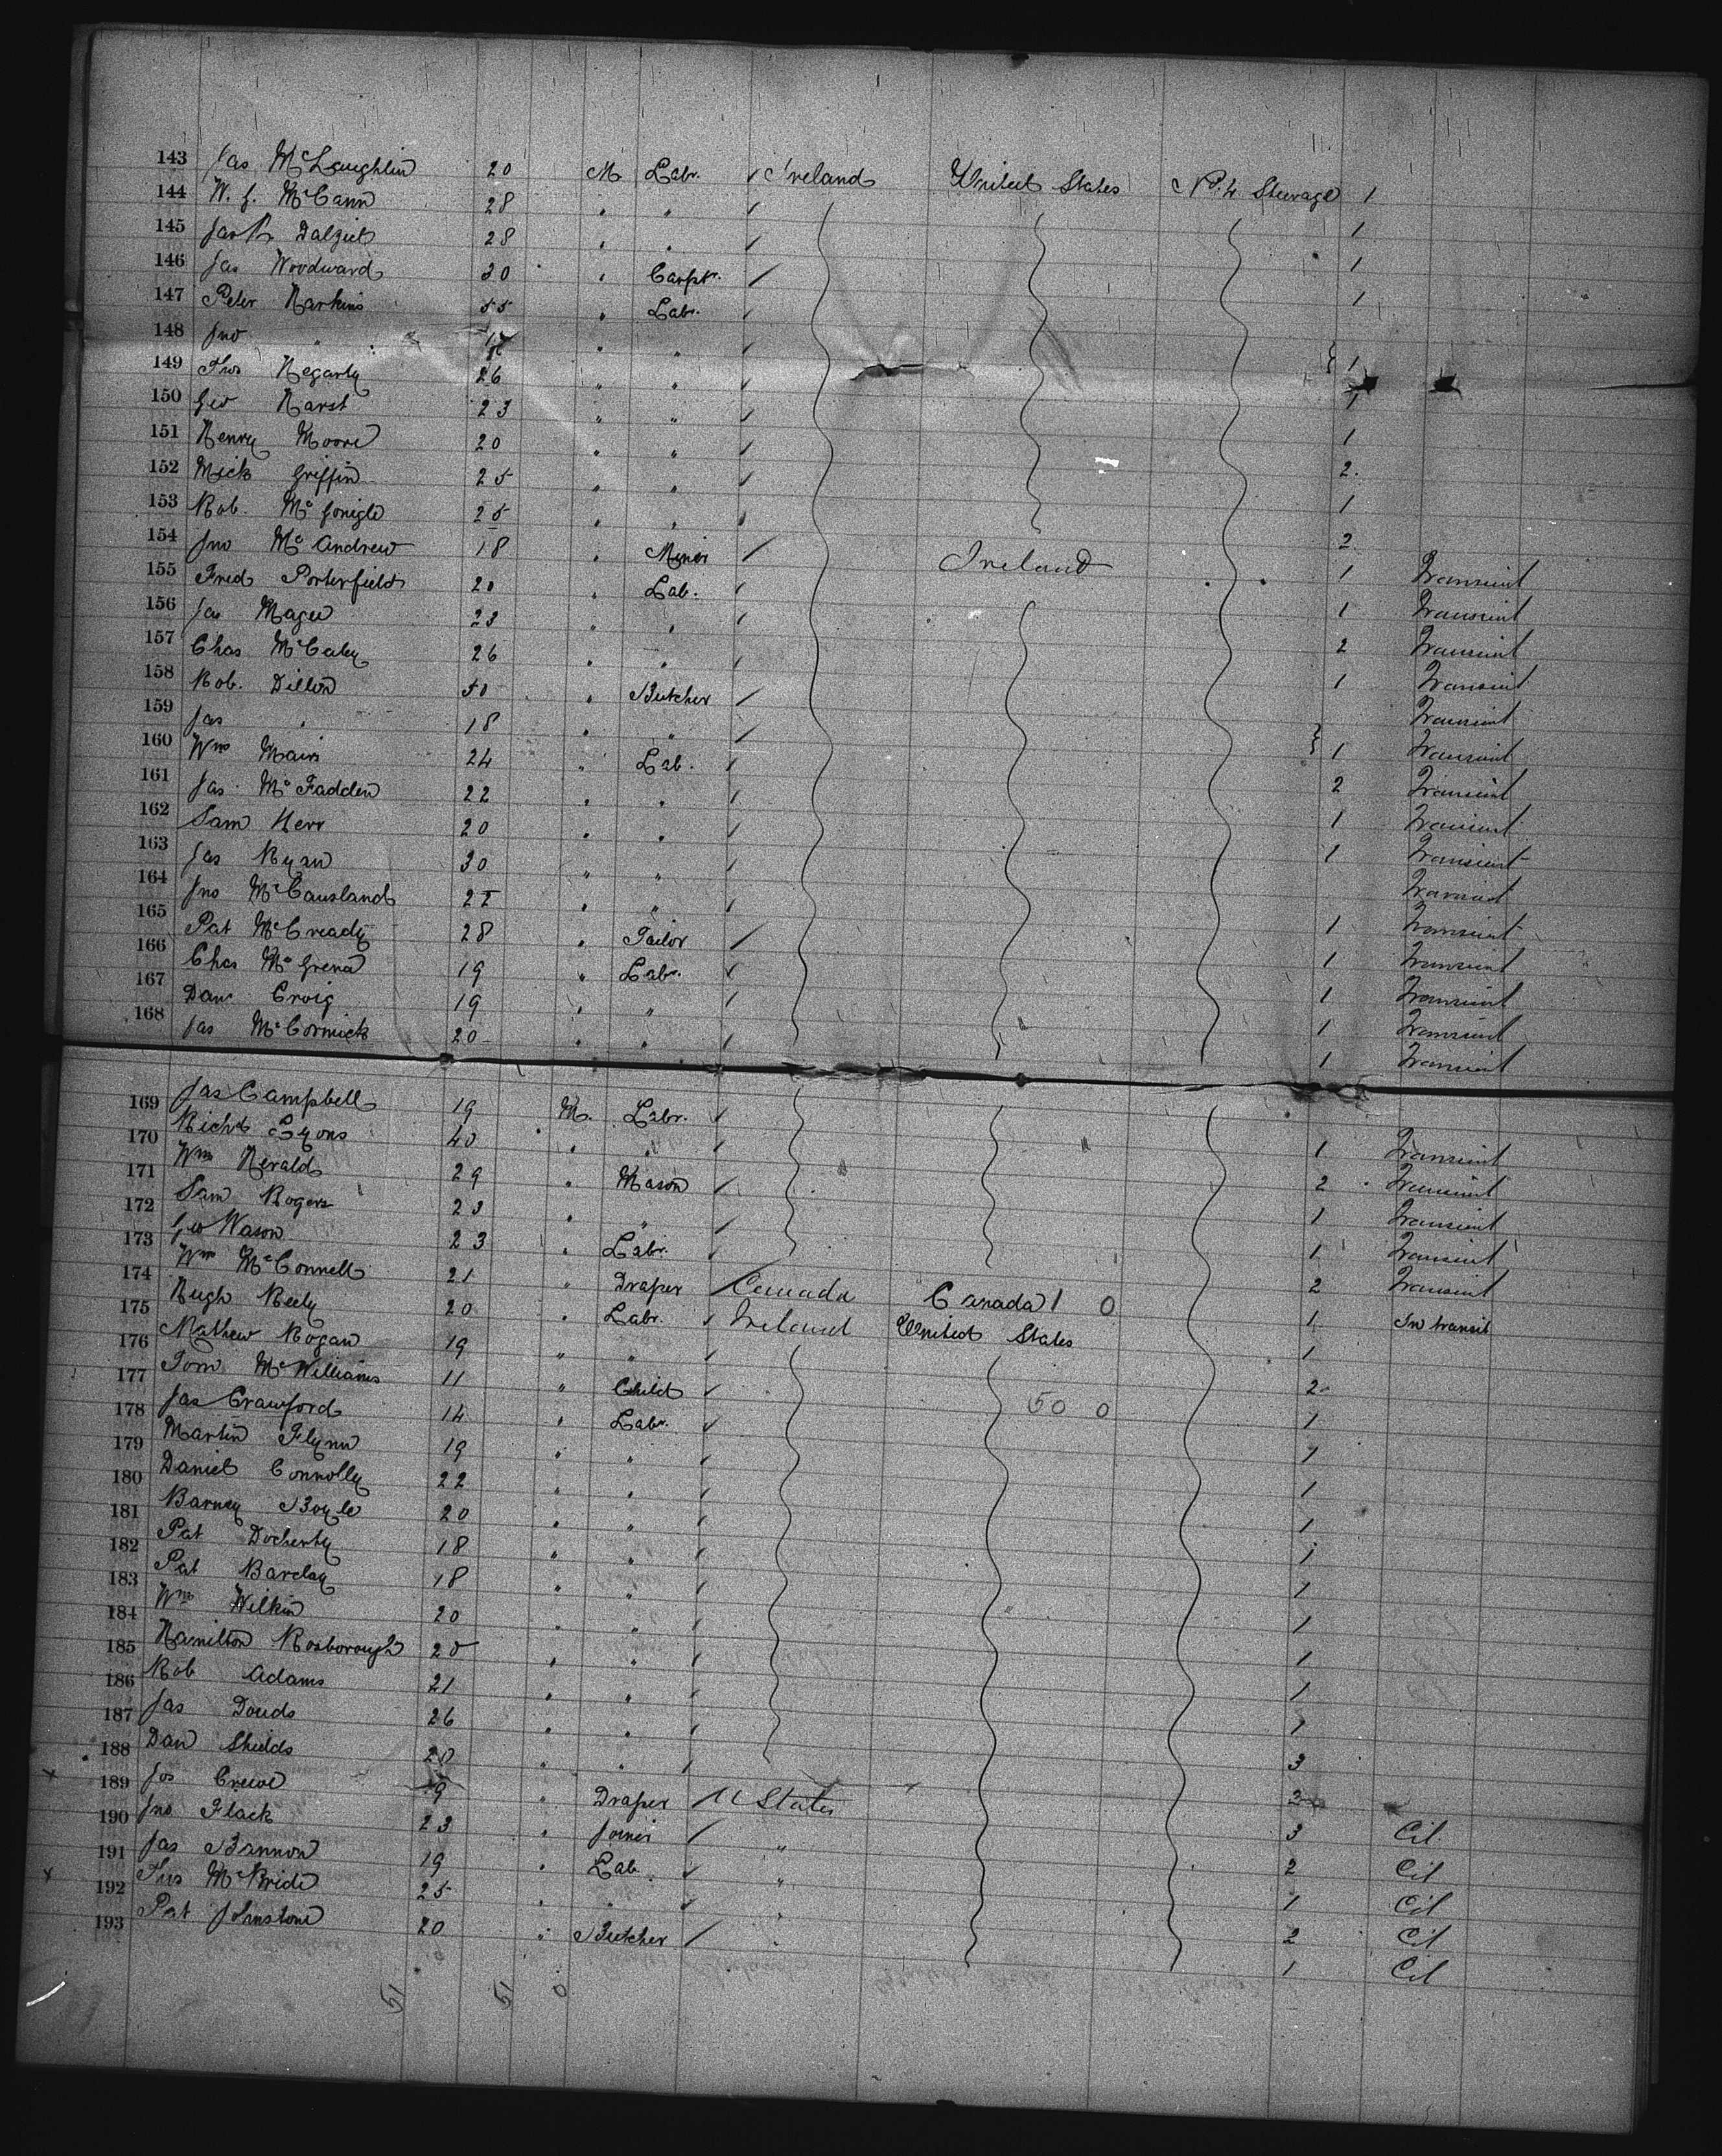 143 Jas McLaughlin 20 M Labr. ✓ Ireland United States No. 4 Steerage 1
144 W. J. McCann 28 " " ✓ 1
145 Jas Dalziel 28 " " ✓ 1
146 Jas Woodward 30 " Carpr. ✓ 1
147 Peter Harkins 55 " Labr. ✓
148 Jno " " " ✓ } 1
149 Thos Hegarty 26 " " ✓ 1
150 Geo 23 " " ✓ 1
151 Henry Moore 20 " " ✓ 2.
152 Mick Griffin 25 " " ✓ 1
153 Rob. McGonigle 25 " " ✓ 2
154 Jno McAndrew 18 " Miner ✓ Ireland 1 Transient
155 Fred Porterfield 20 " Lab. ✓ 1 Transient
156 Jas Magee 23 " " ✓ 2 Transient
157 Chas 26 " " ✓ 1 Transient
158 Rob. Dillon 50 " Butcher ✓ Transient
159 Jas " 18 " " ✓ } 1 Transient
160 Wm Mair 24 " Lab. ✓ 2 Transient
161 Jas. McFadden 22 " " ✓ 1 Transient
162 Sam Kerr 20 " " ✓ 1 Transient
163 Jas Ryan 30 " " ✓ Transient
164 Jno McCausland 22 " " ✓ 1 Transient
165 Pat McCready 28 " Tailor ✓ 1 Transient
166 Chas 19 " Labr. ✓ 1 Transient
167 Dan Craig 19 " " ✓ 1 Transient
168 Jas McCormick 20 " " ✓ 1 Transient
169 Jas Campbell 19 M. Labr. ✓ 1 Transient
170 Richd Lyons 40 " " ✓ 2 Transient
171 Wm Herald 29 " Mason ✓ 1 Transient
172 Sam Rogers 23 " " ✓ 1 Transient
173 Geo Wason 23 " Labr. ✓ 2 Transient
174 Wm McConnell 21 " Draper ✓ Canada Canada 1 0 1 In transit
175 Hugh 20 " Labr. ✓ Ireland United States 1
176 Mathew Hogan 19 " " ✓ 2
177 Tom McWilliams 11 " Child ✓ 50 0 1
178 Jas Crawford 14 " Labr. ✓ 1
179 Martin Flynn 19 " " ✓ 1
180 Daniel Connolly 22 " " ✓ 1
181 Barney Boyle 20 " " ✓ 1
182 Pat Docherty 18 " " ✓ 1
183 Pat Barclay 18 " " ✓ 1
184 Wm Wilkin 20 " " ✓ 1
185 Hamilton Rosborough 20 " " ✓ 1
186 Rob Adams 21 " " ✓ 1
187 Jas Douds 26 " " ✓ 3
188 Dan Shields 20 " " ✓ 2
189 Jos Crewe " Draper ✓ U States 3 Cit
190 Jno Flack 23 " Joiner ✓ " 2 Cit
191 Jas Bannon 19 " Lab ✓ " 1 Cit
192 Thos McBride 25 " " ✓ " 2 Cit
193 Pat Johnstone 20 " Butcher ✓ " 1 Cit
51 51 0